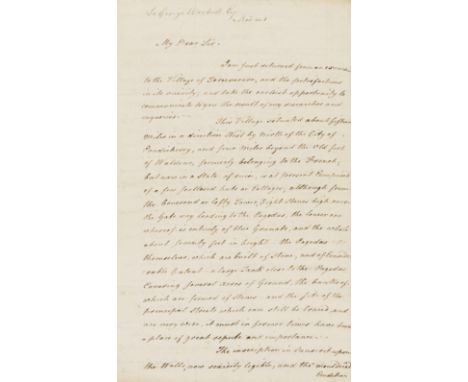 To George Warburst Esq
Madras
My Dear Sir.
I am just returned from an
to the Village of and the petrefactions
in its vicinity, and take the earliest opportunity to
communicate to you the result of my researches and
inquiries.
This Village situated about fifteen
miles in a direction West by North of the City of
Pondicherry, and four Miles beyond the Old fort
of Waldour, formerly belonging to the French,
but now in a state of ruin, is at present Composed
of a few Scattered huts or Cottages, although from
the Gunerund or lofty Tower, Eight Stories high over
the Gate way leading to the Pagodas, the lower one
whereof is entirely of blue Grannate, and the whole
about seventy feet in height - the Pagodas
themselves, which are built of Stone, and of
extent - a large Tank close to the Pagodas
Covering several acres of Ground, the banks of
which are formed of Stone - and the site of the
principal Streets which can still be traced, and
are very wide, it must in former times have been
a place of great repute and importance.
The inscription in Sanscrit upon
the Walls, now scarcely legible, and the